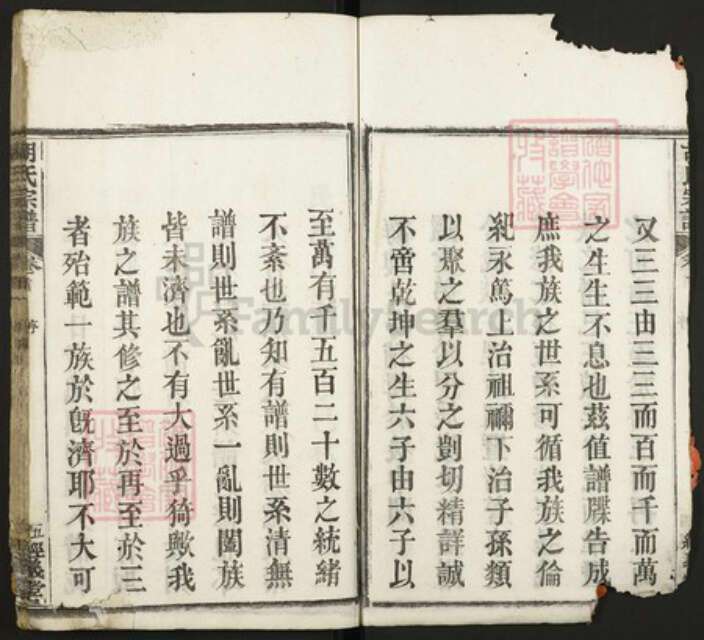 又三三由三三而百而千而萬
之生生不息也茲值譜牒告成
庶我族之世系可循我族之倫
紀永篤上治祖禰下治子孫類
以聚之羣以分之剴切精詳誠
不啻乾坤之生六子由六子以
至萬有千五百二十數之統緒
不紊也乃知有譜則世系清無
譜則世系亂世系一亂則闔族
皆未濟也不有大過乎猗歟我
族之譜其修之至於再至於三
者殆範一族於旣濟耶不大可
胡氏宗譜
卷首
序
五經義堂
FamilySearch